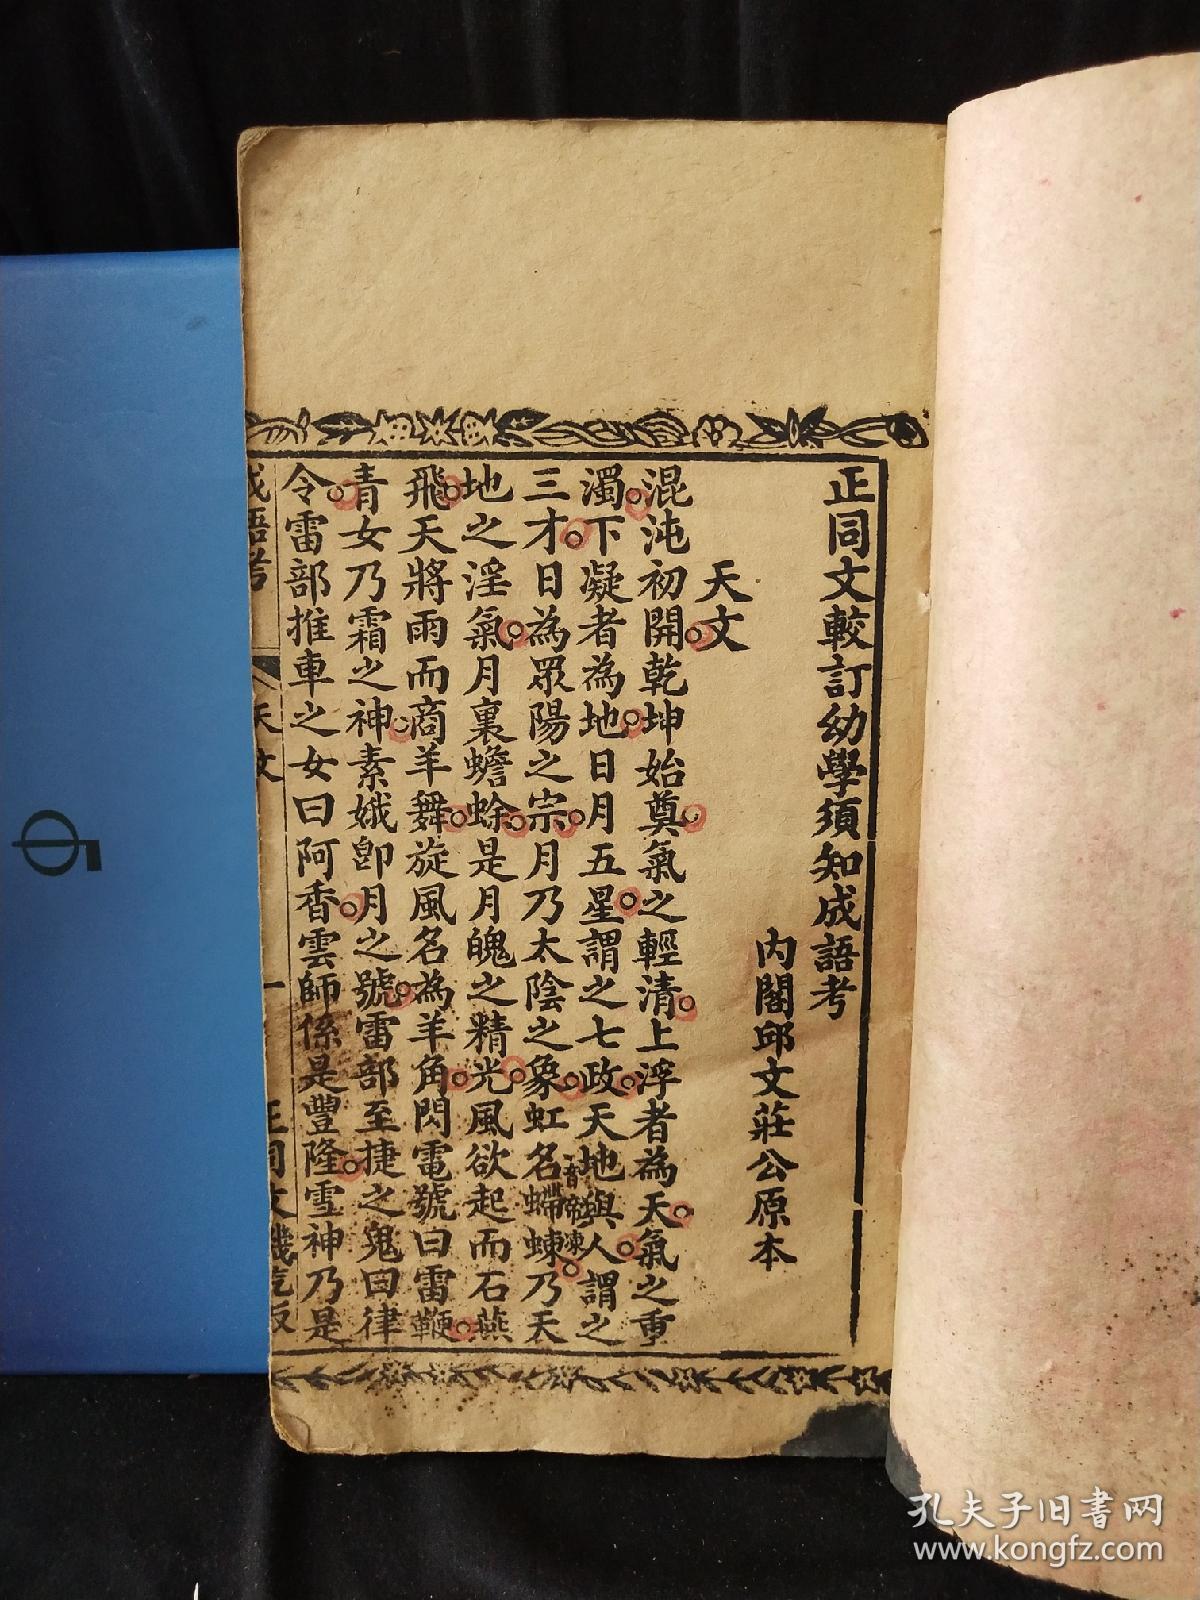 正同文較訂幼學須知成語考
內閣邱文莊公原本
天文
混沌初開乾坤始奠氣之輕清上浮者為天氣之重
濁下凝者為地日月五星謂之七政天地與人謂之
三才日為眾陽之宗月乃太陰之象虹名螮蝀音帝凍乃天
地之淫氣月裏蟾蜍是月魄之精光風欲起而石燕
飛天將雨而商羊舞旋風名為羊角閃電號曰雷鞭
青女乃霜之神素娥即月之號雷部至捷之鬼曰律
令雷部推車之女曰阿香雲師係是豐隆雪神乃是
成語考 天文 一 正同文
孔夫子旧书网
www.kongfz.com